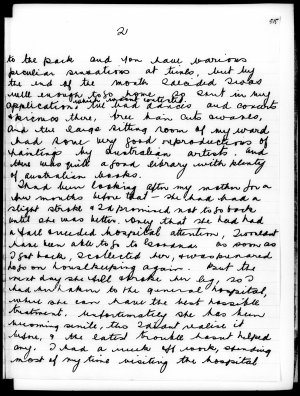 2
to the park and you have various
peculiar sensations at times, but by
the end of the month I decided I was
well enough to go home. So sent in my
application, which wasn't contested. We had dances and concerts
& picnics there, free hair cuts & waves,
and the large sitting room of my ward
had some very good reproductions of
paintings by Australian artists. And
there was quite a good library with plenty
of Australian books.
I had been looking after my mother for a
few months before that – she had had a
slight stroke & I'd promised not to go back
until she was better. Only that she had had
a fall & needed hospital attention, I wouldn't
have been able to go to as soon as
I got back, I collected her, & was prepared
to go on housekeeping again. But the
next day she fell & broke her leg, so I
had her taken to the general hospital,
where she can have the best possible
treatment. Unfortunately she has been
becoming senile, tho I didn't realise it
before, & the latest trouble hasn't helped
any. I had a week off work, spending
most of my time visiting the hospital